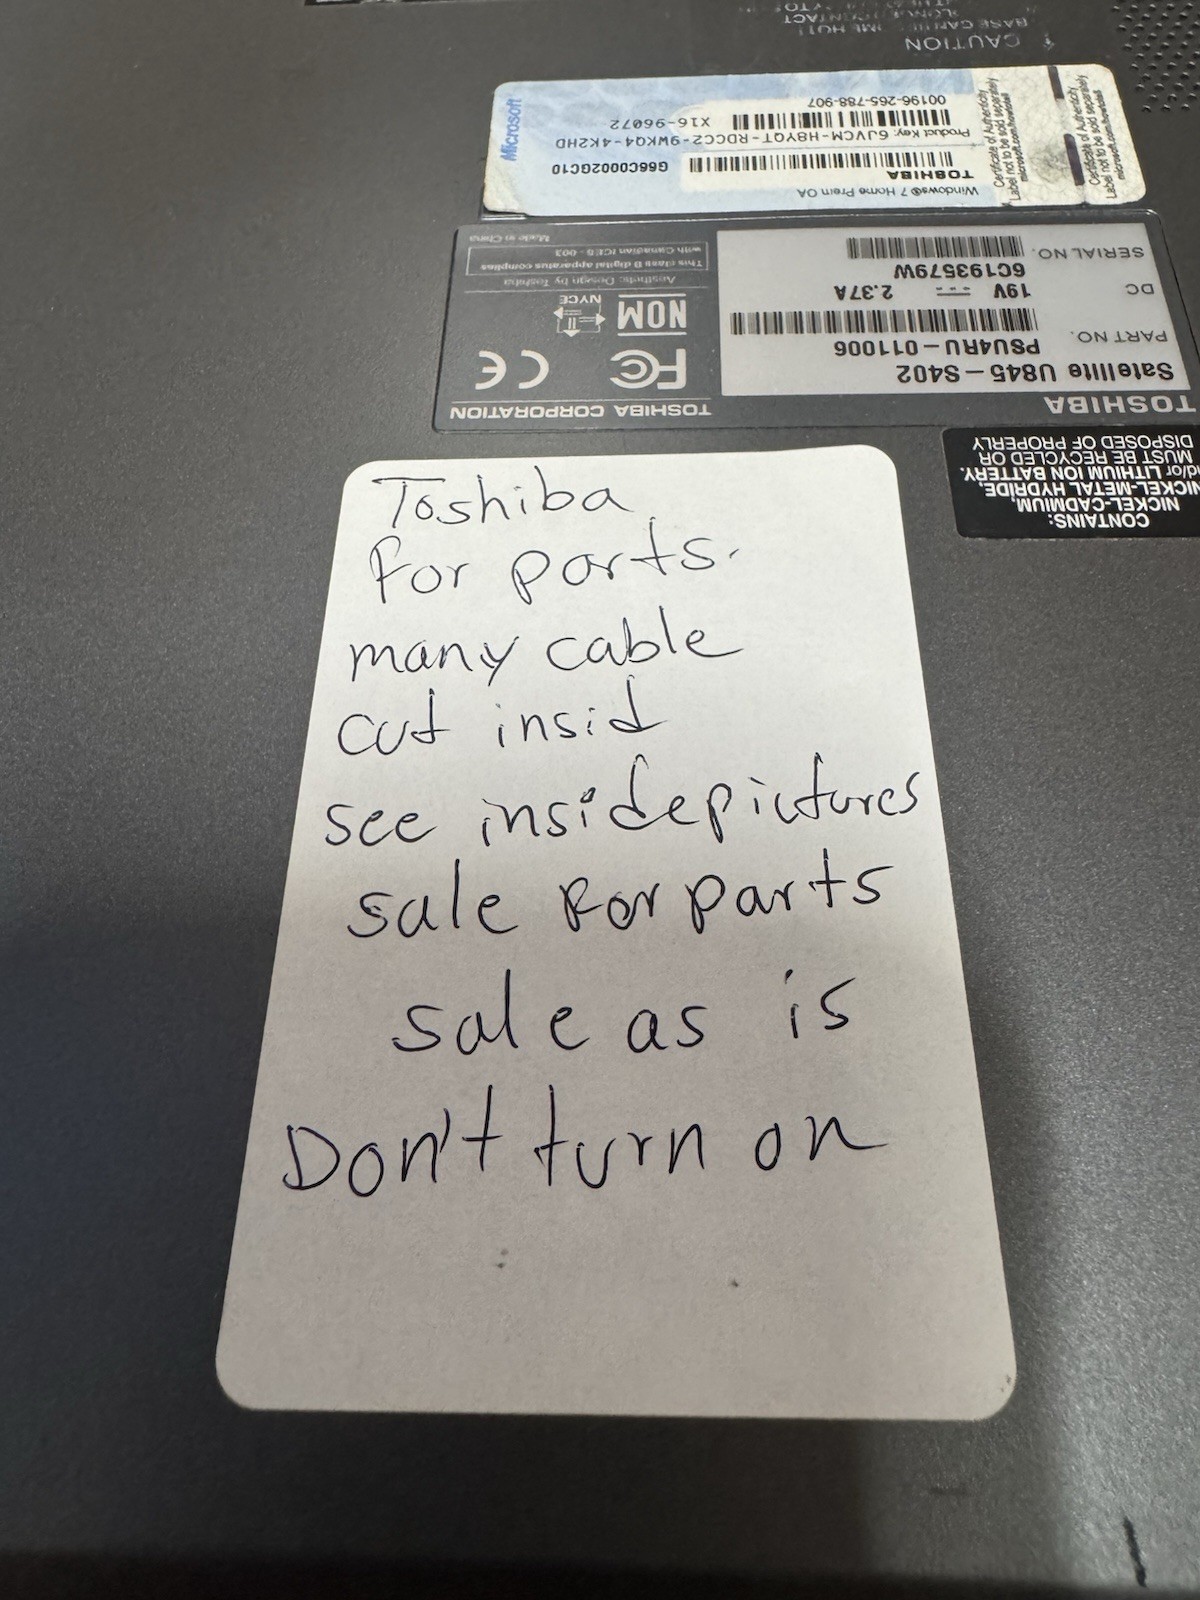 Toshiba
for parts.
many cable
cut insid
see inside pictures
sale for parts
sale as is
Don't turn on
CONTAINS:
NICKEL-CADMIUM,
NICKEL-METAL HYDRIDE,
and/or LITHIUM ION BATTERY.
MUST BE RECYCLED OR
DISPOSED OF PROPERLY
TOSHIBA
Satellite U845-S402
PART NO. PSU4RU-011006
DC 19V 2.37A
SERIAL NO. 6C193579W
TOSHIBA CORPORATION
FC CE
NOM
NYCE
Aesthetic Design by Toshiba
This class B digital apparatus complies
with Canadian ICES-003
Made in China
Windows®7 Home Prem OA
TOSHIBA
G66C0002GC10
Product Key: 6JVCM-H8YQT-RDCC2-9WKQ4-4K2HD
X16-96072
00196-265-788-907
Microsoft
Certificate of Authenticity
Label not to be sold separately
microsoft.com/howtotell
Certificate of Authenticity
Label not to be sold separately
microsoft.com/howtotell
CAUTION